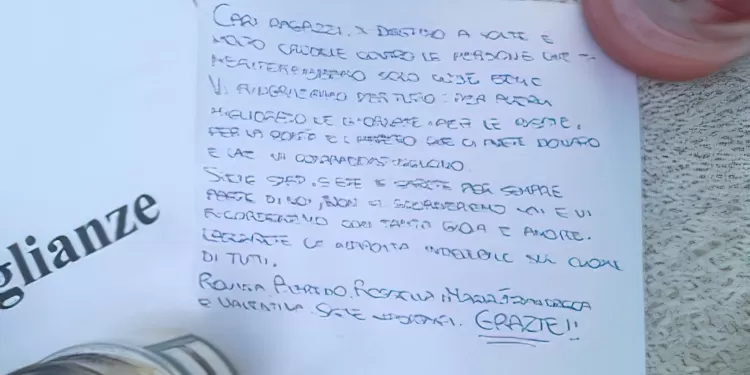 glianze
CARI RAGAZZI, IL DESTINO A VOLTE È
MOLTO CRUDELE CONTRO LE PERSONE CHE
MERITEREBBERO SOLO COSE
VI RINGRAZIAMO PER TUTTO: PER AVERCI
MIGLIORATO LE GIORNATE, PER LE
PER LA E L'AFFETTO CHE CI AVETE DONATO
E CHE VI
SIETE STATI, SIETE E SARETE PER SEMPRE
PARTE DI NOI, NON CI SCORDEREMO MAI E VI
RICORDEREMO CON TANTA GIOIA E AMORE.
LASCIATE LE INDELEBILE SUL CUORE
DI TUTTI.
ROSSELLA, MARIA FRANCESCA
E VALENTINA. SIETE GRAZIE!!